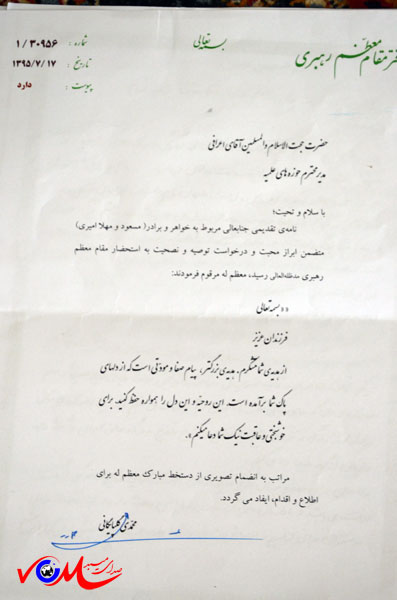 بسمه‌تعالی
دفتر مقام معظم رهبری
شماره : ۱/۳۰۹۵۶
تاریخ : ۱۳۹۵/۷/۱۷
پیوست : دارد
حضرت حجت الاسلام والمسلمین آقای اعرافی
مدیر محترم حوزه های علمیه
با سلام و تحیت؛
نامه‌ی تقدیمی جنابعالی مربوط به خواهر و برادر( مسعود و مهلا امیری)
متضمن ابراز محبت و درخواست توصیه و نصحیت به استحضار مقام معظم
رهبری مدظله‌العالی رسید، معظم له مرقوم فرمودند:
«« بسمه تعالی
فرزندان عزیز
از هدیه‌ی شما متشکرم. هدیه‌ی بزرگتر، پیام صفا و مودّتی است که از دلهای
پاک شما برآمده است. این روحیّه و این دل را همواره حفظ کنید. برای
خوشبختی و عاقبت نیک شما دعا میکنم».
مراتب به انضمام تصویری از دستخط مبارک معظم له برای
اطلاع و اقدام، ایفاد می گردد.
محمدی گلپایگانی
صدای میبد